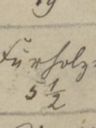 Furholz=
5 1/2